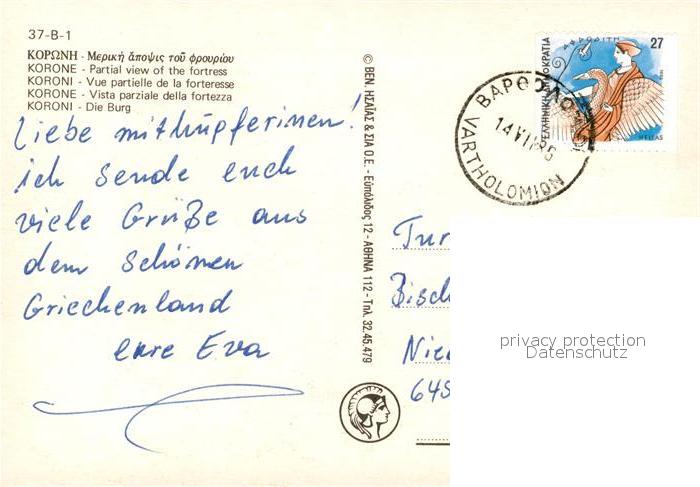 37-B-1
ΚΟΡΩΝΗ - Μερική άποψις τοῦ φρουρίου
KORONE - Partial view of the fortress
KORONI - Vue partielle de la forteresse
KORONE - Vista parziale della fortezza
KORONI - Die Burg
Liebe mithüpferinnen!
ich sende euch
viele Grüße aus
dem schönen
Griechenland
eure Eva
© ΒΕΝ. ΗΣΑΪΑΣ & ΣΙΑ Ο.Ε. - Εὐπόλιδος 12 - ΑΘΗΝΑ 112 - Τηλ. 32.45.479
ΑΦΡΟΔΙΤΗ
27
ΕΛΛΗΝΙΚΗ ΔΗΜΟΚΡΑΤΙΑ
HELLAS
VARTHOLOMION
Tur
Bisch
Nied
645
privacy protection
Datenschutz